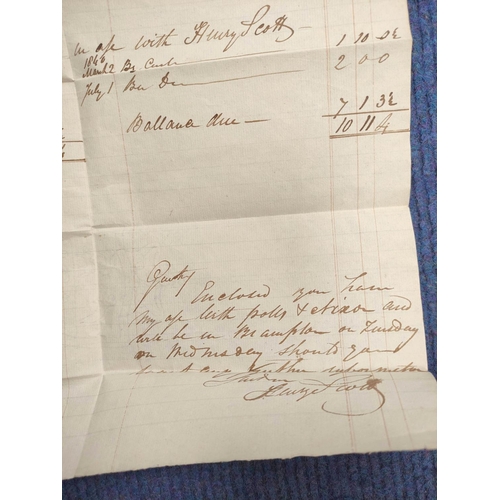 in a/c with Henry Scott
1840
March 2 By Cash 1 10 0½
July 1 2 0 0
7 1 3½
Ballance due — 10 11 4
Enclosed you have
my a/c with and
will be in Brampton on Tuesday
or Wednesday should you
want any further information
Henry Scott